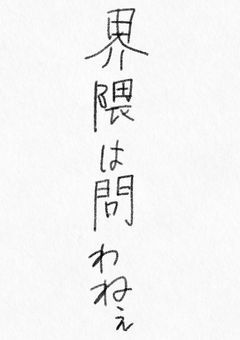 界隈は問わねぇ